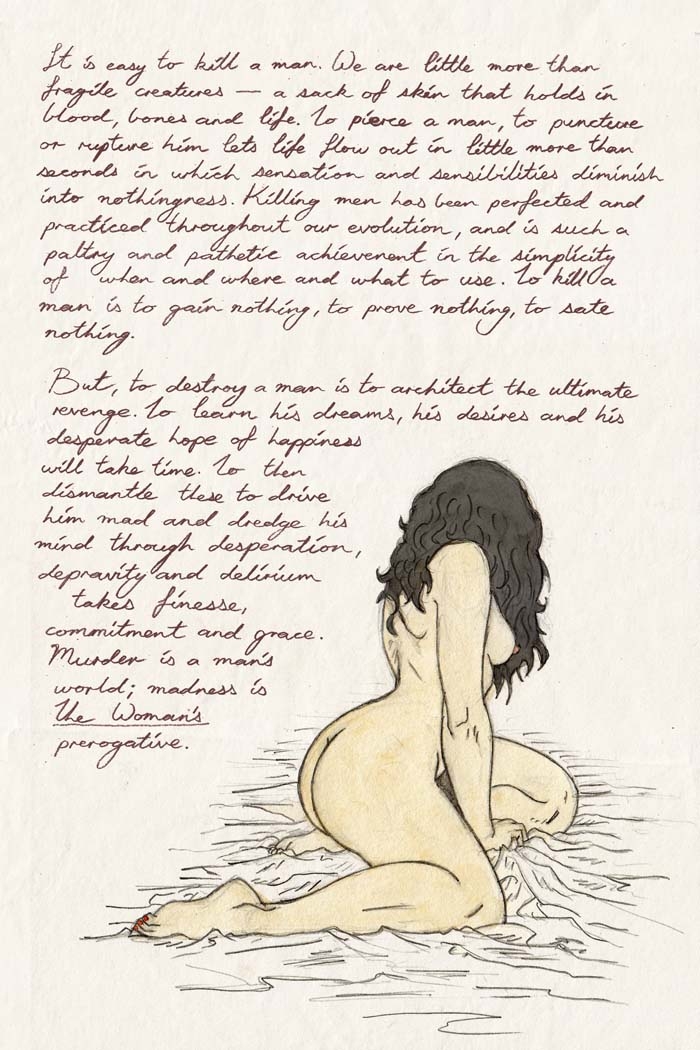 It is easy to kill a man. We are little more than
fragile creatures — a sack of skin that holds in
blood, bones and life. To pierce a man, to puncture
or rupture him lets life flow out in little more than
seconds in which sensation and sensibilities diminish
into nothingness. Killing men has been perfected and
practiced throughout our evolution, and is such a
paltry and pathetic achievement in the simplicity
of when and where and what to use. To kill a
man is to gain nothing, to prove nothing, to sate
nothing.
But, to destroy a man is to architect the ultimate
revenge. To learn his dreams, his desires and his
desperate hope of happiness
will take time. To then
dismantle these to drive
him mad and dredge his
mind through desperation,
depravity and delirium
takes finesse,
commitment and grace.
Murder is a man's
world; madness is
The Woman's
prerogative.